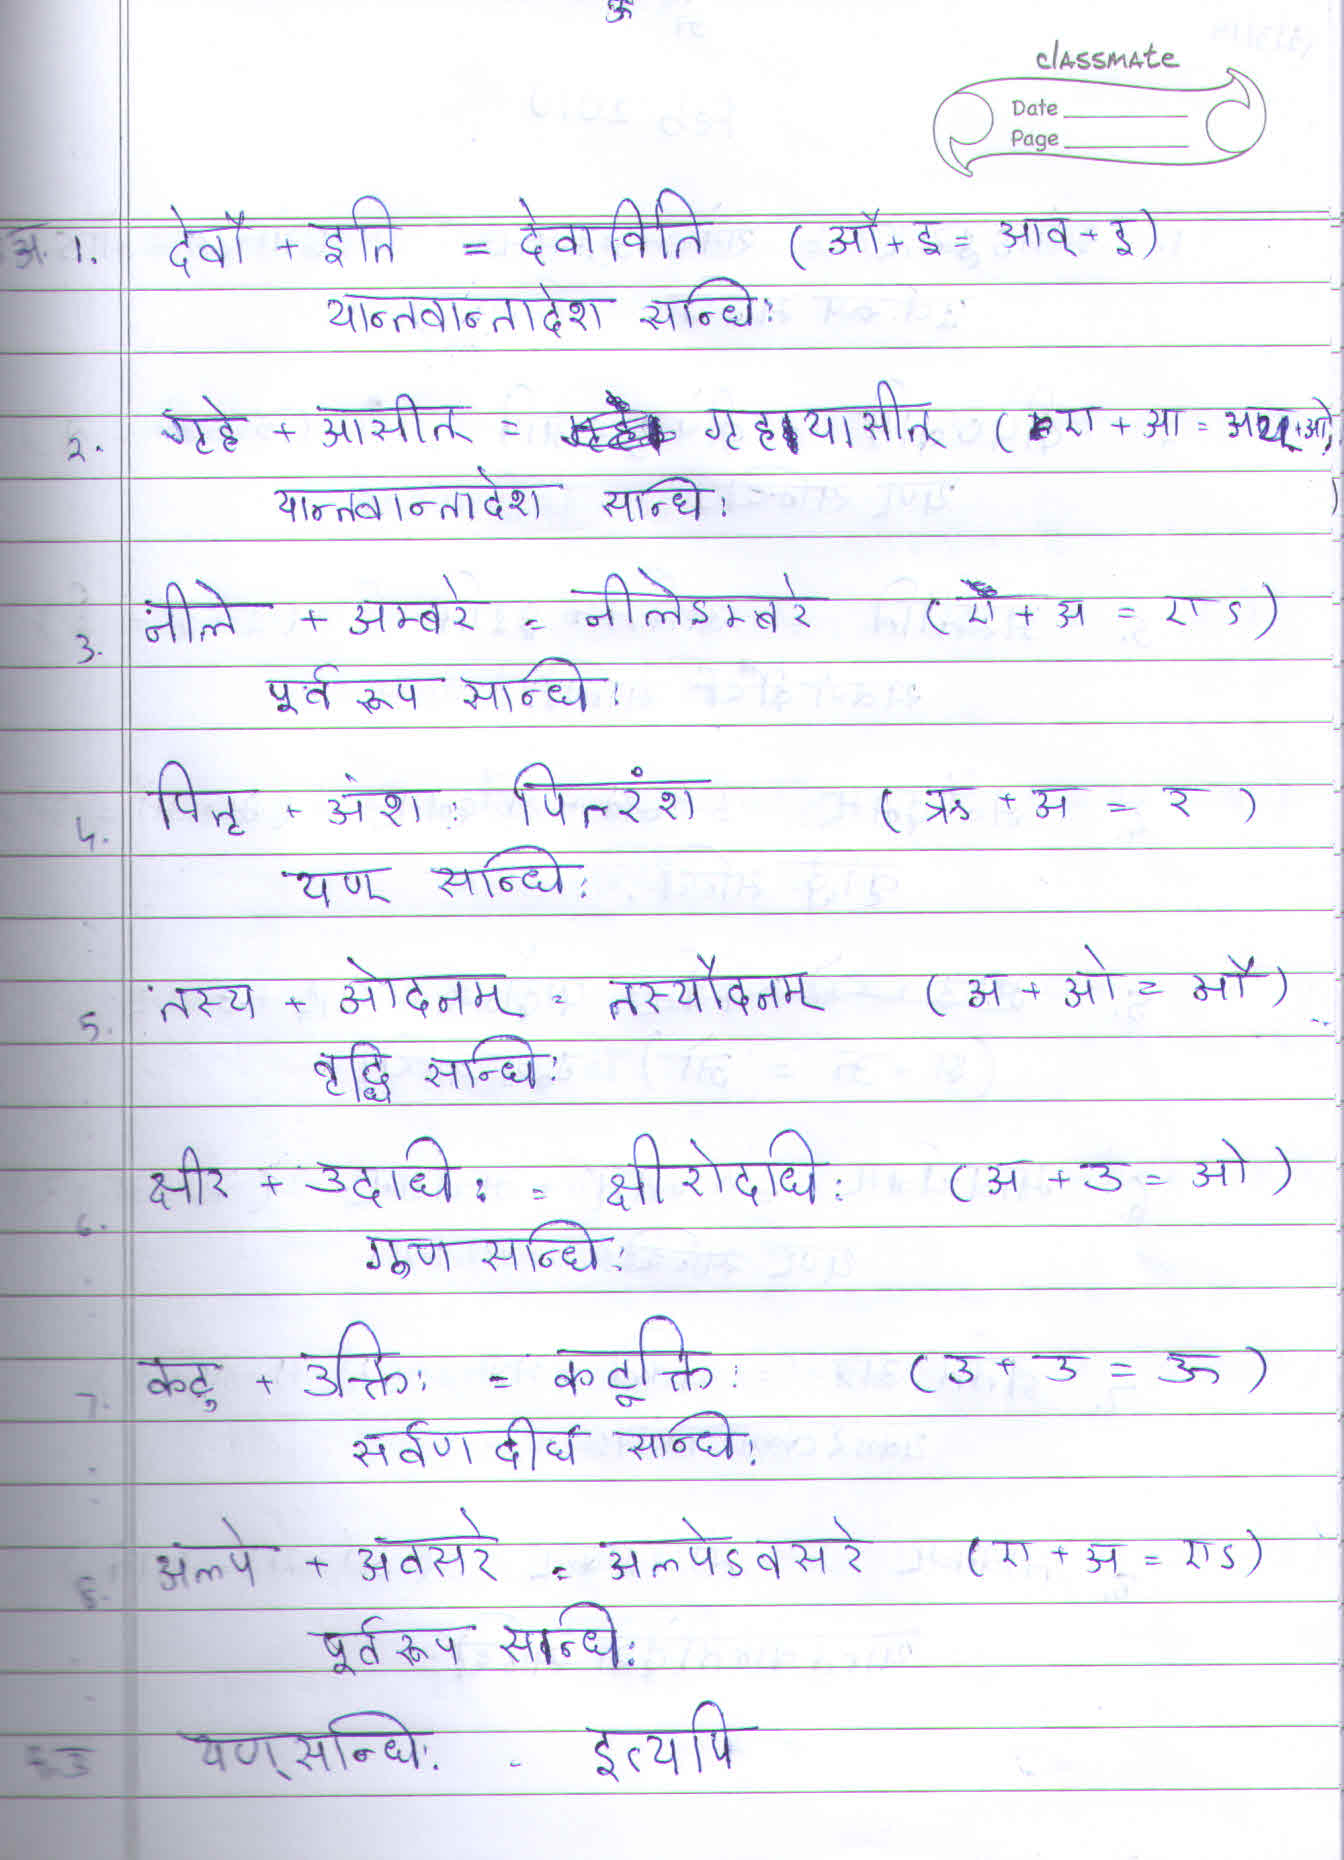 classmate
Date
Page
अ. 1. देवौ + इति = देवाविति (औ+इ = आव्+इ)
यान्तवान्तादेश सन्धिः
2. गृहे + आसीत् गृहयासीत् (ए + आ = अय्+आ)
यान्तवान्तादेश सन्धिः
3. नीले + अम्बरे = नीलेऽम्बरे (ए + अ = एऽ)
पूर्वरूप सन्धिः
4. पितृ + अंशः पितरंश (ऋ + अ = र)
यण् सन्धिः
5. तस्य + ओदनम् = तस्यौदनम् (अ + ओ = औ)
वृद्धि सन्धिः
6. क्षीर + उदधिः = क्षीरोदधिः (अ + उ = ओ)
गुण सन्धिः
7. कटु + उक्तिः = कटूक्तिः (उ + उ = ऊ)
सर्वण दीर्घ सन्धिः
8. अल्पे + अवसरे = अल्पेऽवसरे (ए + अ = एऽ)
पूर्वरूप सन्धिः
यण् सन्धिः - इत्यपि